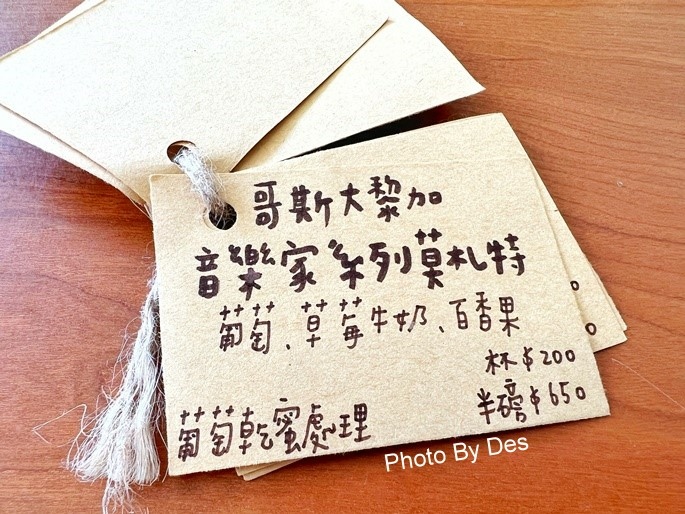 哥斯大黎加
音樂家系列莫札特
葡萄、草莓牛奶、百香果
杯$200
半磅$650
葡萄乾蜜處理
Photo By Des